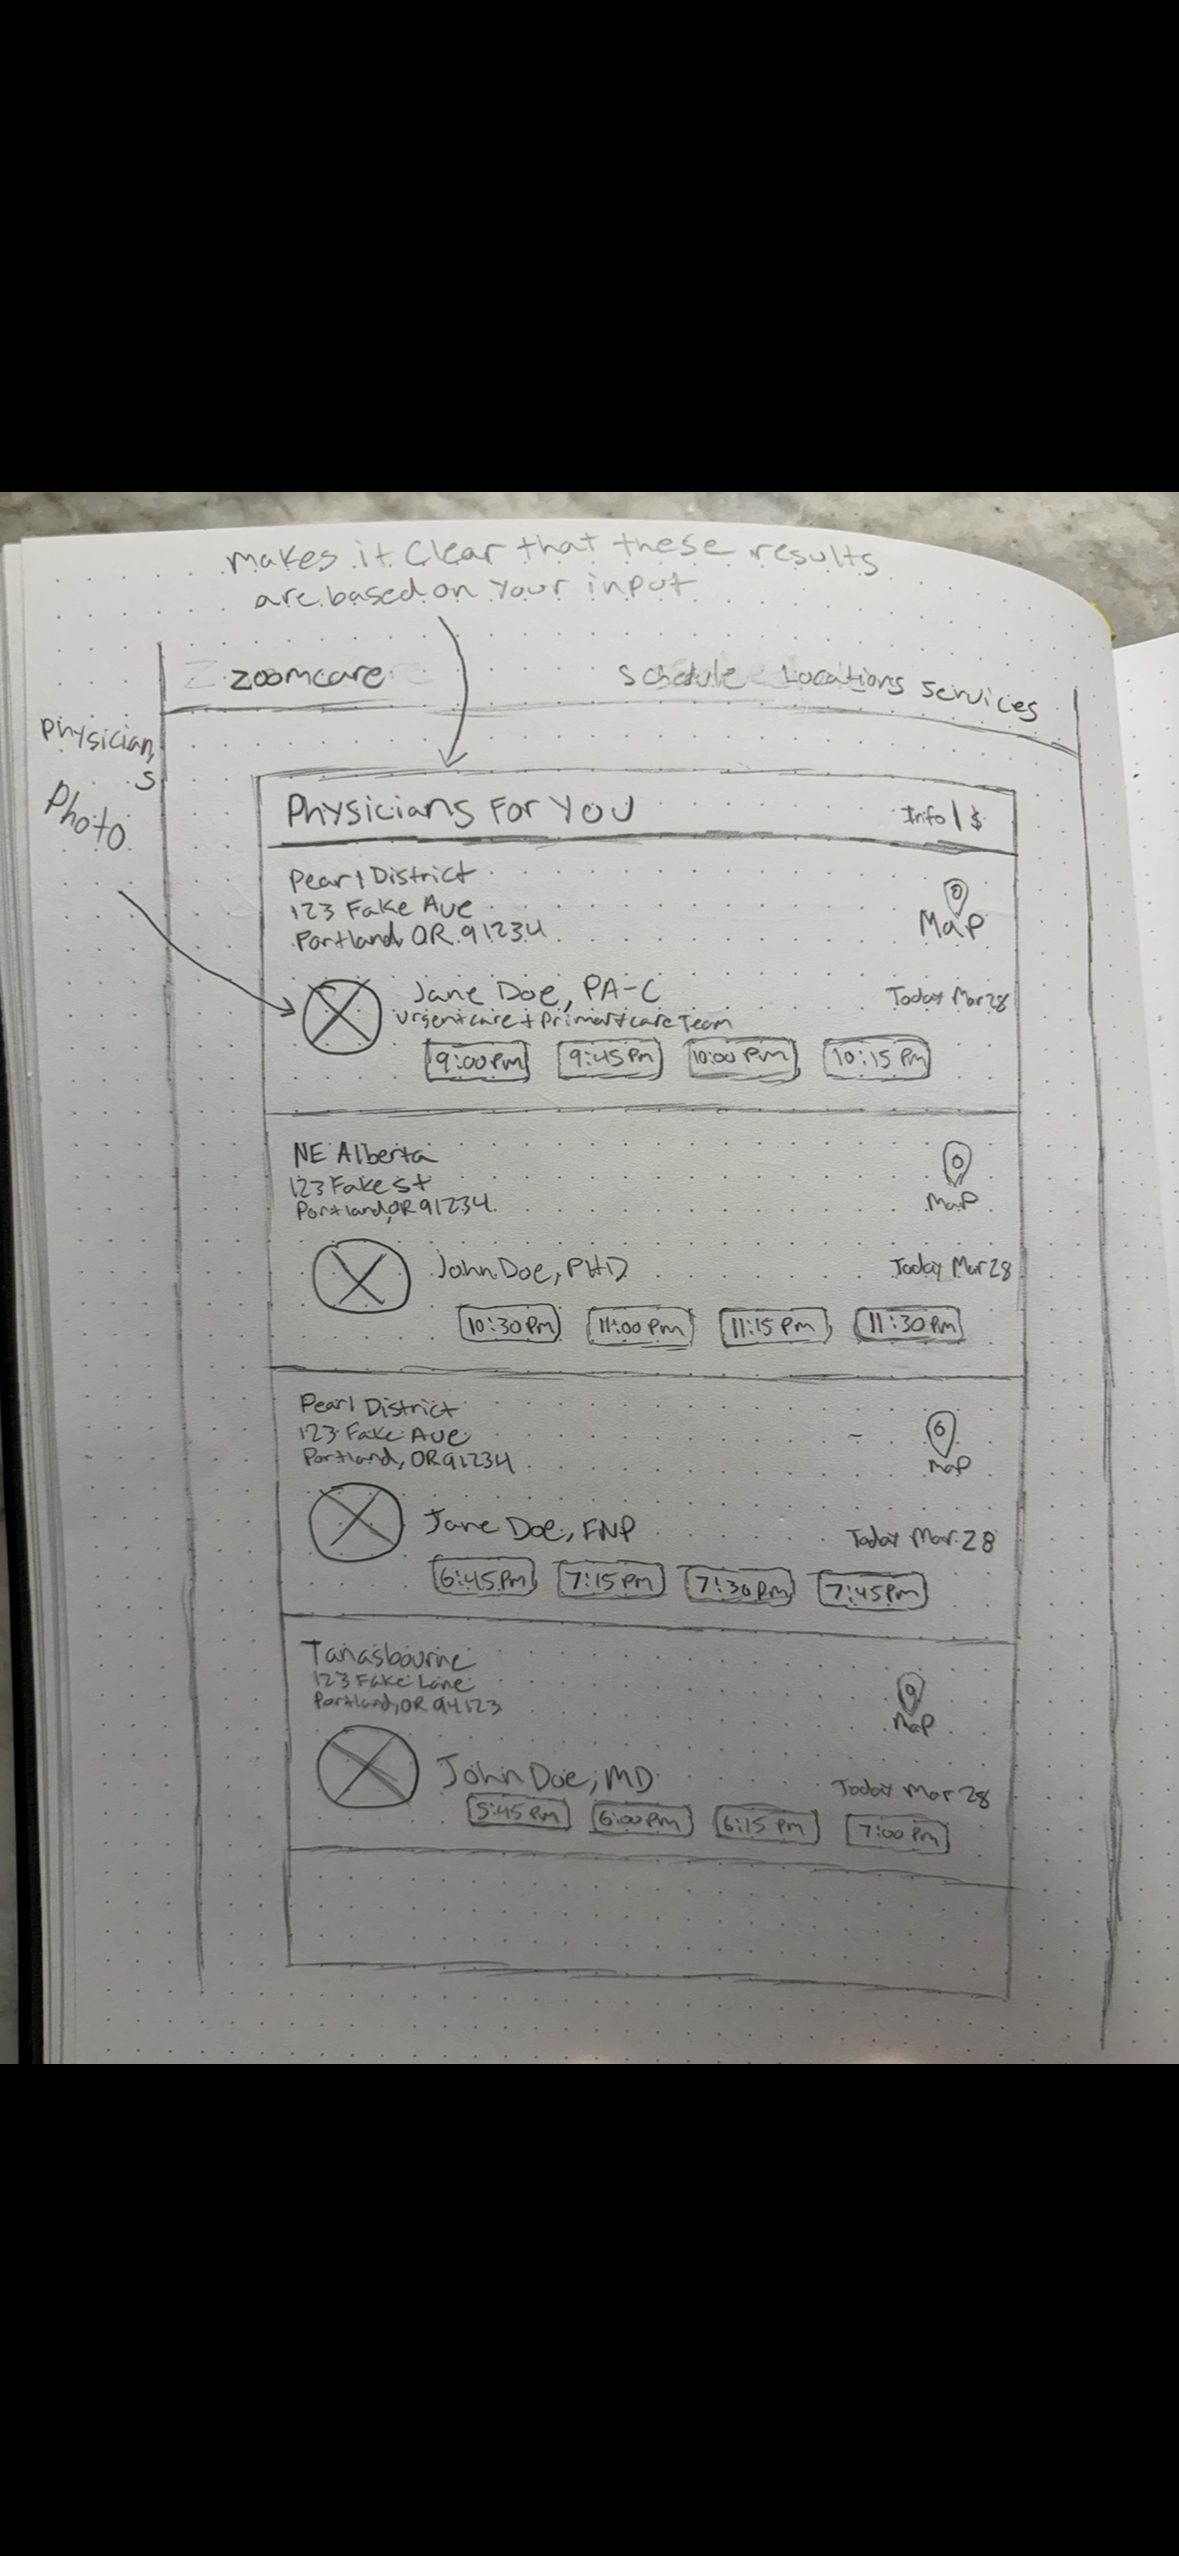 makes it Clear that these results
are based on your input
zoomcare
Schedule Locations Services
Physician's
Photo
Physicians For You
Info | $
Pearl District
123 Fake Ave
Portland, OR 91234
Map
Jane Doe, PA-C
Today Mar 28
Urgentcare + Primary care Team
9:00 pm 9:45 pm 10:00 pm 10:15 pm
NE Alberta
123 Fake St
Portland, OR 91234
Map
John Doe, PHD
Today Mar 28
10:30 pm 11:00 pm 11:15 pm 11:30 pm
Pearl District
123 Fake Ave
Portland, OR 91234
Map
Jane Doe, FNP
Today Mar 28
6:45 pm 7:15 pm 7:30 pm 7:45 pm
Tanasbourne
123 Fake Lane
Portland, OR 94123
Map
John Doe, MD
Today Mar 28
5:45 pm 6:00 pm 6:15 pm 7:00 pm